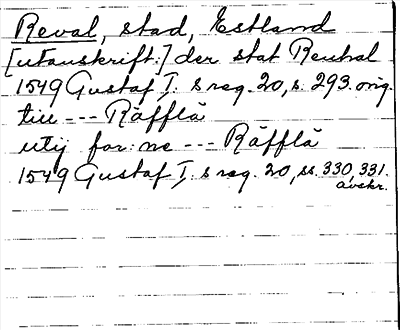 Reval, stad, Estland
[utanskrift:] der stat Reuhal
1549 Gustaf I.s reg. 20, s. 293. orig.
till --- Räfflä
utij for:ne --- Räfflä
1549 Gustaf I.s reg. 20, ss. 330, 331.
avskr.